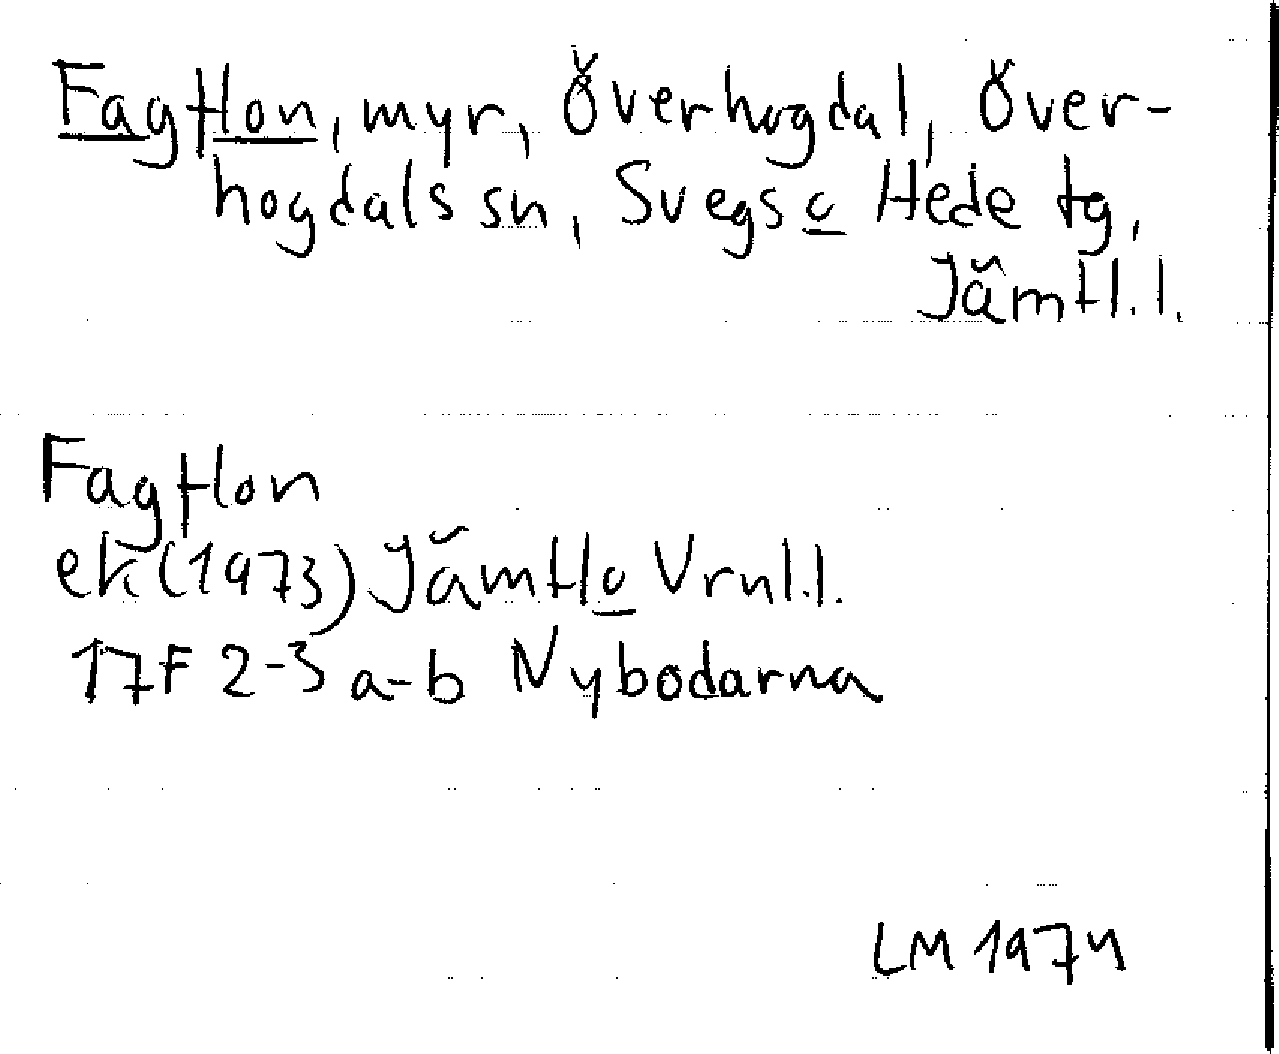 Fagtlon, myr, Överhogdal, Över-
hogdals sn, Svegs o Hede tg,
Jämtl.l.
Fagtlon
ek (1973) Jämtl o Vrnl.l.
17F 2-3 a-b Nybodarna
LM 1974